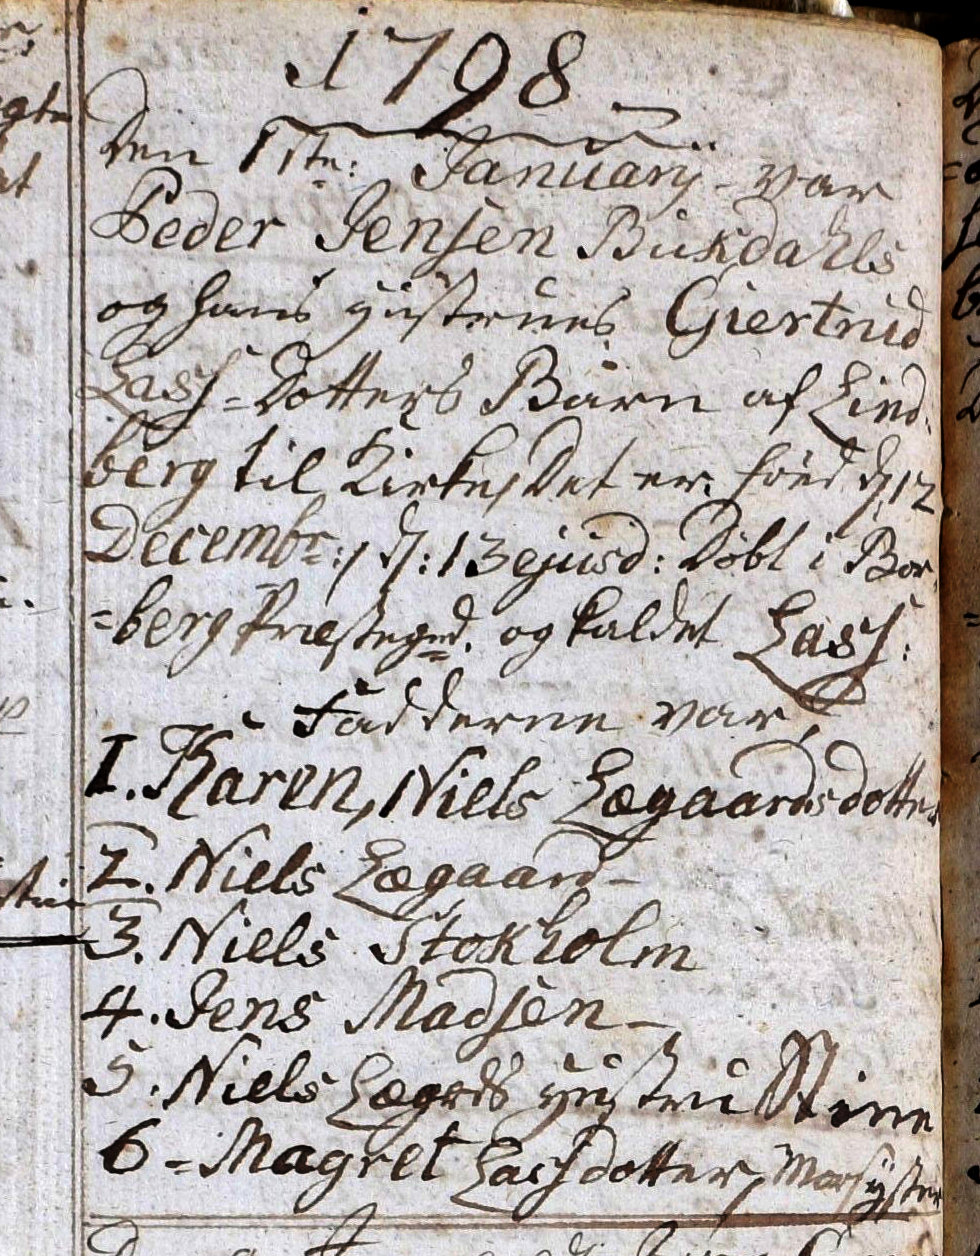 1798
den 1ste: Januarij - var
Peder Jensen Bukdahls
og hans hustrues Giertrud
Lass=Dotters Barn af Lind:
berg til Kirke, Det er föed d: 12
Decembr:, d: 13 ejusd: Döbt i Bor
=berg Præstegrd. og kaldet Lass:
Fadderne var,
1. Karen, Niels Lægaardsdotter
2. Niels Lægaard -
3. Niels Stokholm
4. Jens Madsen -
5. Niels Lægrds hustru Stine
6 - Magret Lassdotter, Morsyster